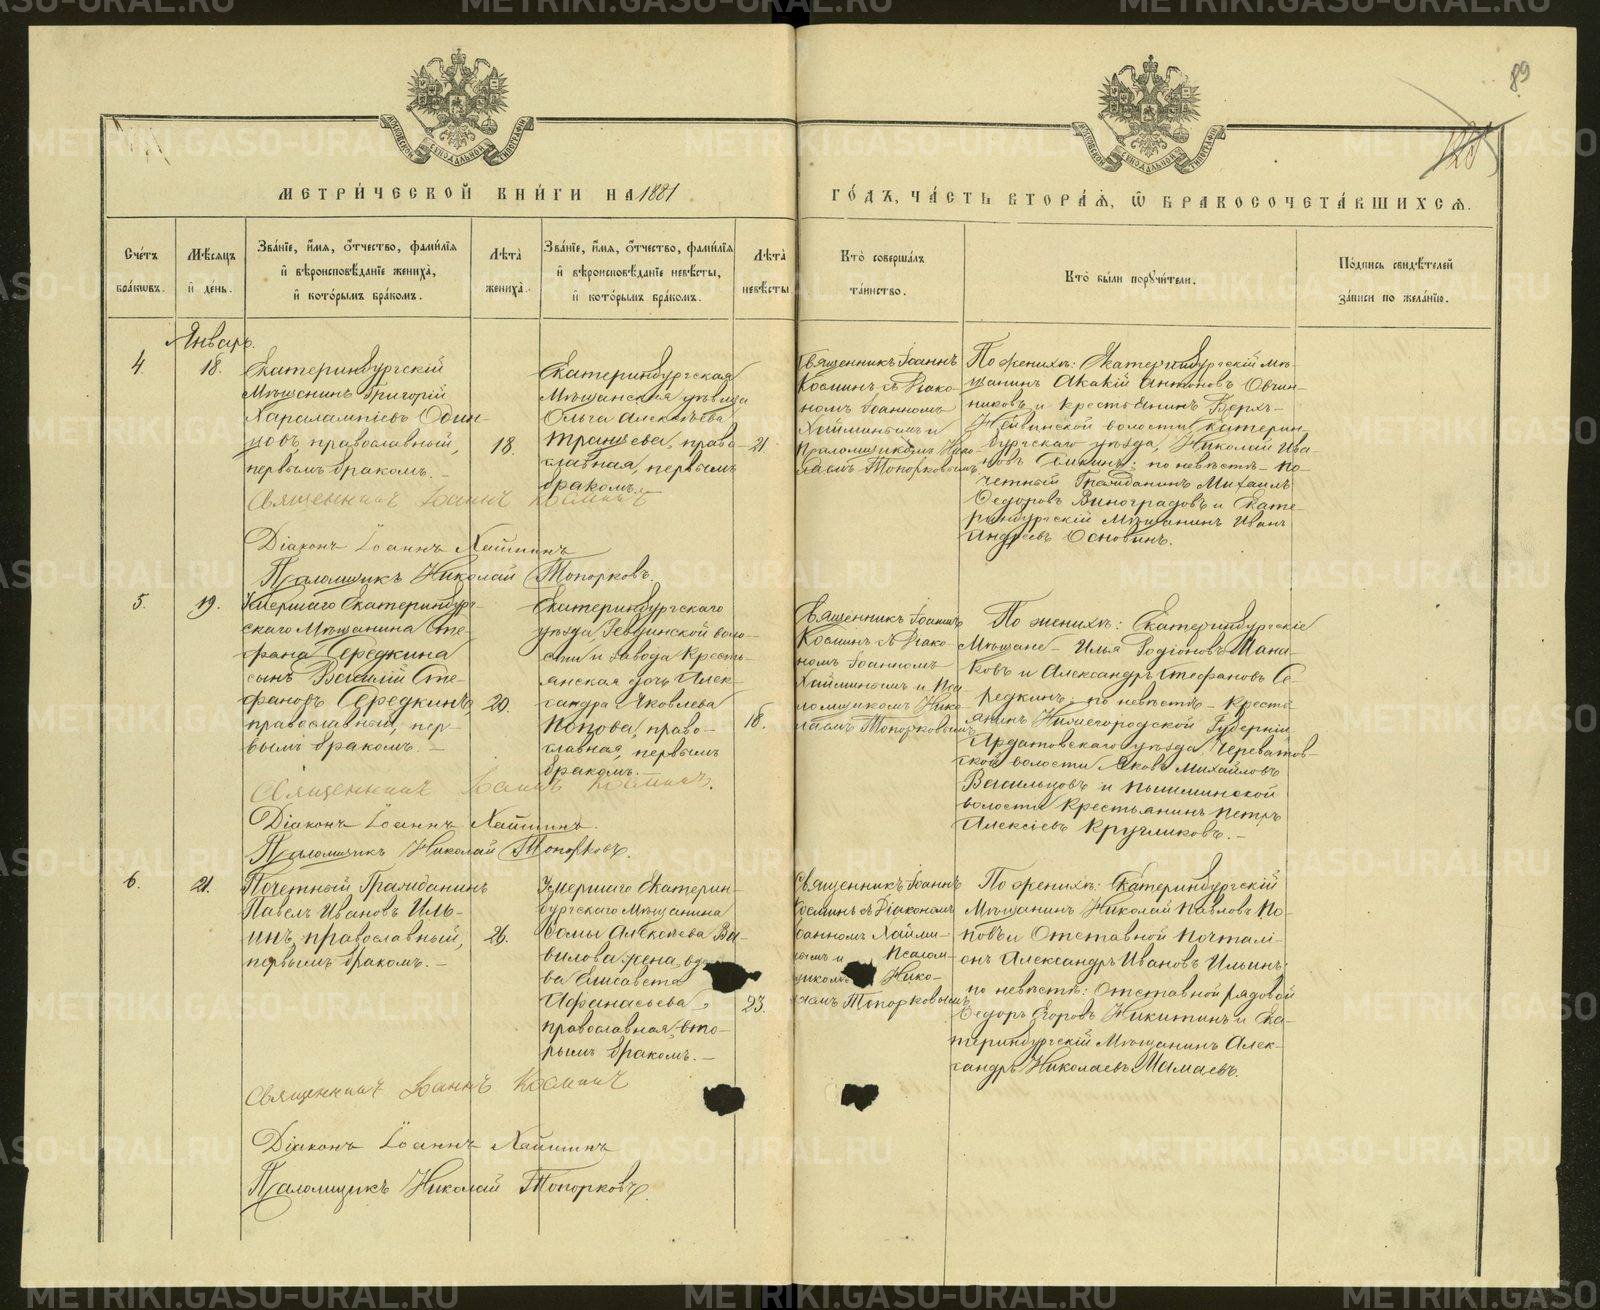 МЕТРИЧЕСКОЙ КНИГИ НА 1881
ГОДЪ, ЧАСТЬ ВТОРАЯ, Ѿ БРАКОСОЧЕТАВШИХСЯ.
89
Счетъ браковъ.
Мѣсяцъ и день.
Званіе, имя, отчество, фамилія
и вѣроисповѣданіе жениха,
и которымъ бракомъ.
Лѣта жениха.
Званіе, имя, отчество, фамилія
и вѣроисповѣданіе невѣсты,
и которымъ бракомъ.
Лѣта невѣсты.
Кто совершалъ
таинство.
Кто были поручители.
Подпись свидѣтелей
записи по желанію.
Январь.
4.
18.
Екатеринбургскій
Мѣщанинъ Григорій
Харалампіевъ Один-
цовъ, православный,
первымъ бракомъ. –
18.
Екатеринбургская
Мѣщанская дѣвица
Ольга Алексѣева
православная, первымъ
бракомъ.
21.
Священникъ Іоаннъ
Косминъ съ Діако-
номъ Іоанномъ
Хайминымъ и
Псаломщикомъ Нико-
лаемъ Топорковымъ.
По женихѣ: Екатеринбургскій мѣ-
щанинъ Акакій Антоновъ Овчин-
никовъ и крестьянинъ Верхъ-
Нейвинской волости, Екатерин-
бургскаго уѣзда, Николай Ива-
новъ; по невѣстѣ – по-
четный Гражданинъ Михаилъ
Федоровъ Виноградовъ и Екате-
ринбургскій Мѣщанинъ Иванъ
Андреевъ Основинъ.
Священникъ Іоаннъ Косминъ
Діаконъ Іоаннъ Хайминъ
Псаломщикъ Николай Топорковъ.
5.
19.
Умершаго Екатеринбург-
скаго Мѣщанина Сте-
фана Середкина
сынъ Василій Сте-
фановъ Середкинъ,
православный, пер-
вымъ бракомъ. –
20.
Екатеринбургскаго
уѣзда Ревдинской воло-
сти и завода Кресть-
янская дочь Алек-
сандра Яковлева
Попова, право-
славная, первымъ
бракомъ.
18.
Священникъ Іоаннъ
Косминъ съ Діако-
номъ Іоанномъ
Хайминымъ и Пса-
ломщикомъ Нико-
лаемъ Топорковымъ.
По женихѣ: Екатеринбургскіе
Мѣщане – Илья Родіоновъ Мана-
ковъ и Александръ Стефановъ Се-
редкинъ; по невѣстѣ – кресть-
янинъ Нижегородской Губерніи
Ардатовскаго уѣзда, Череватов-
ской волости Яковъ Михайловъ
Васильцовъ и Пышминской
волости Крестьянинъ Петръ
Алексіевъ Кругликовъ. –
Священникъ Іоаннъ Косминъ.
Діаконъ Іоаннъ Хайминъ.
Псаломщикъ Николай Топорковъ.
6.
21.
Почетный Гражданинъ
Павелъ Ивановъ Иль-
инъ, православный,
первымъ бракомъ. –
26.
Умершаго Екатерин-
бургскаго Мѣщанина
Ѳомы Алексѣева Ва-
вилова жена, вдо-
ва Елисавета
Афанасьева,
православная, вто-
рымъ бракомъ. –
23.
Священникъ Іоаннъ
Косминъ съ Діакономъ
Іоанномъ Хайми-
нымъ и Псалом-
щикомъ Нико-
лаемъ Топорковымъ.
По женихѣ: Екатеринбургскій
Мѣщанинъ Николай Павловъ По-
повъ и Отставной почталі-
онъ Александръ Ивановъ Ильинъ;
по невѣстѣ: Отставной рядовой
Федоръ Егоровъ Никитинъ и Ека-
теринбургскій Мѣщанинъ Алек-
сандръ Николаевъ Мамаевъ.
Священникъ Іоаннъ Косминъ
Діаконъ Іоаннъ Хайминъ
Псаломщикъ Николай Топорковъ.
METRIKI.GASO-URAL.RU